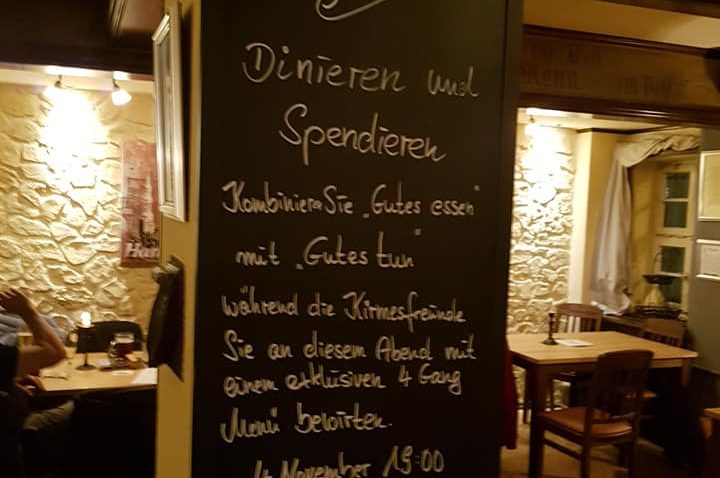 Dinieren und
Spendieren
Kombinieren Sie „Gutes essen"
mit „Gutes tun"
während die Kirmesfreunde
Sie an diesem Abend mit
einem exklusiven 4 Gang
Menü bewirten.
4 November 19:00